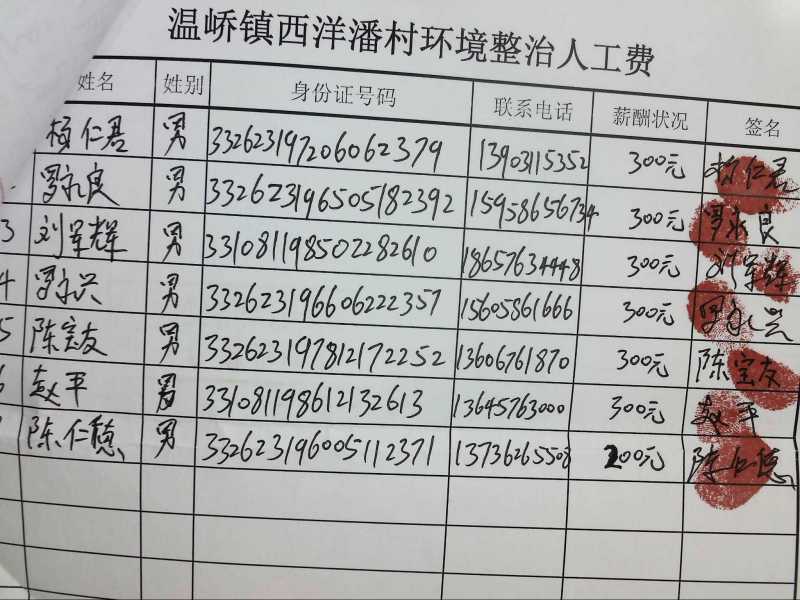 温峤镇西洋潘村环境整治人工费
姓名 姓别 身份证号码 联系电话 薪酬状况 签名
杨仁君 男 332623197206062379 13903115352 300元 杨仁君
罗永良 男 332623196505182392 15958656734 300元 罗永良
3 刘军辉 男 331081198502282610 18657634448 300元 刘军辉
4 罗永兴 男 332623196606222357 15605861666 300元 罗永兴
5 陈宝友 男 332623197812172252 13606761870 300元 陈宝友
6 赵平 男 331081198612132613 13645763000 300元 赵平
陈仁德 男 332623196005112371 13736265508 200元 陈仁德